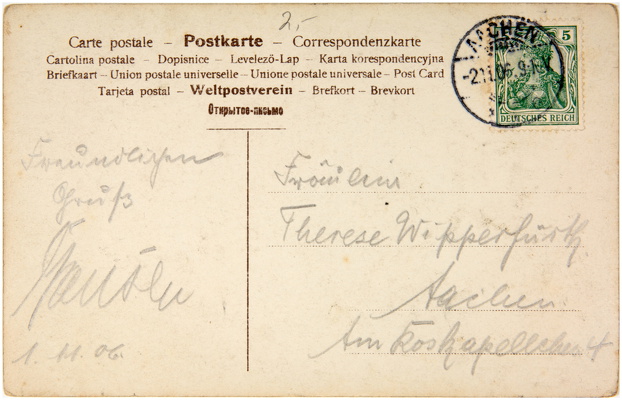 2,-
Carte postale – Postkarte – Correspondenzkarte
Cartolina postale – Dopisnice – Levelező-Lap – Karta korespondencyjna
Briefkaart – Union postale universelle – Unione postale universale – Post Card
Tarjeta postal – Weltpostverein – Brefkort – Brevkort
Открытое-письмо
AACHEN
5
DEUTSCHES REICH
Freundlichen
Gruß
1. 11. 06.
Fräulein
Therese Wipperfürth
Aachen
Am